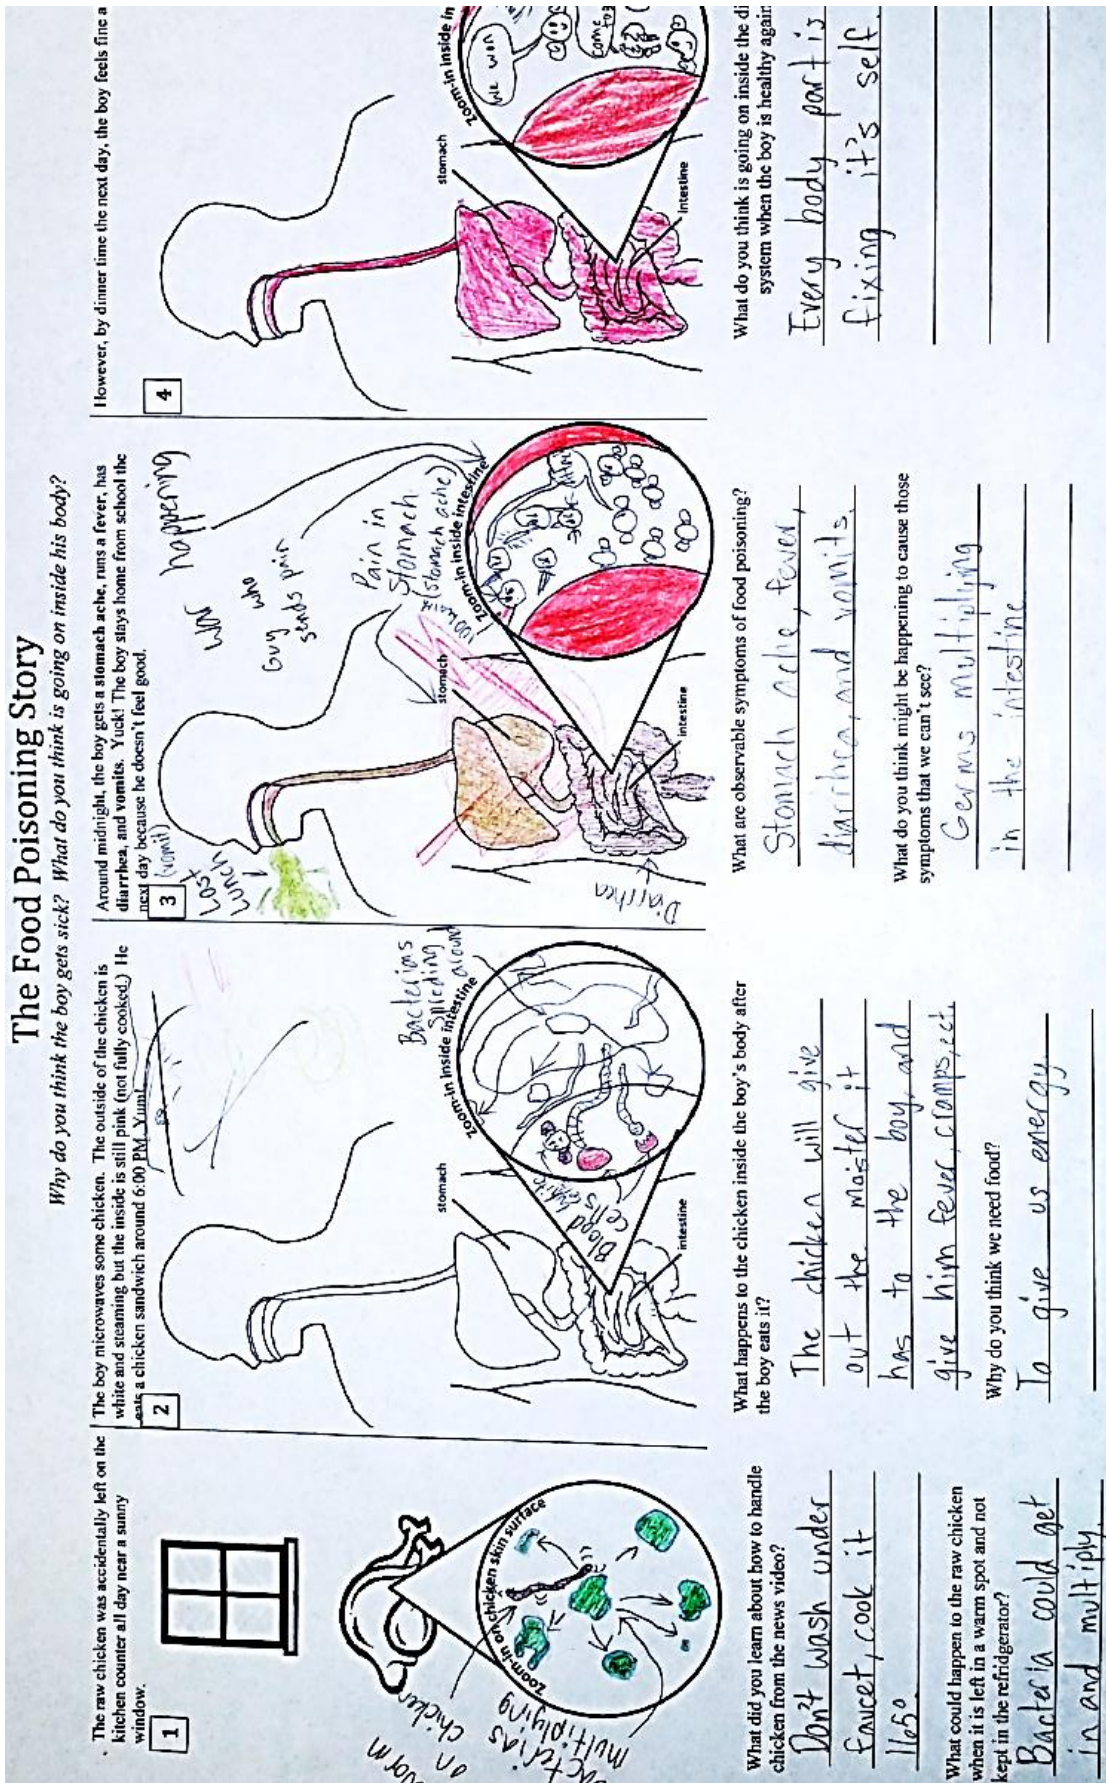 The Food Poisoning Story
Why do you think the boy gets sick? What do you think is going on inside his body?
The raw chicken was accidentally left on the
kitchen counter all day near a sunny
window.
1
Worm
on
chicken
Bacterias
multiplying
zoom-in on chicken skin surface
What did you learn about how to handle
chicken from the news video?
Don't wash under
faucet, cook it
165°
What could happen to the raw chicken
when it is left in a warm spot and not
kept in the refridgerator?
Bacteria could get
in and multiply.
The boy microwaves some chicken. The outside of the chicken is
white and steaming but the inside is still pink (not fully cooked.) He
eats a chicken sandwich around 6:00 PM. Yum!
2
Bacterias
spreding
around
stomach
zoom-in inside intestine
Blood white
cells
intestine
What happens to the chicken inside the boy's body after
the boy eats it?
The chicken will give
out the maister it
has to the boy, and
give him fever, cramps, ect.
Why do you think we need food?
To give us energy.
Around midnight, the boy gets a stomach ache, runs a fever, has
diarrhea, and vomits. Yuck! The boy stays home from school the
next day because he doesn't feel good.
3
(vomit)
Last
lunch
War happening
Guy who
sends pain
Pain in
Stomach
(stomach ache)
stomach
zoom-in inside intestine
intestine
Diarrhea
What are observable symptoms of food poisoning?
Stomach ache, fever,
diarrhea, and vomits.
What do you think might be happening to cause those
symptoms that we can't see?
Germs multiplying
in the intestine
However, by dinner time the next day, the boy feels fine a
4
stomach
zoom-in inside in
We won
intestine
What do you think is going on inside the di
system when the boy is healthy again
Every body part is
fixing it's self.